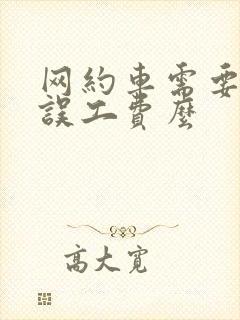 网約車需要
誤工費麼
高大寬